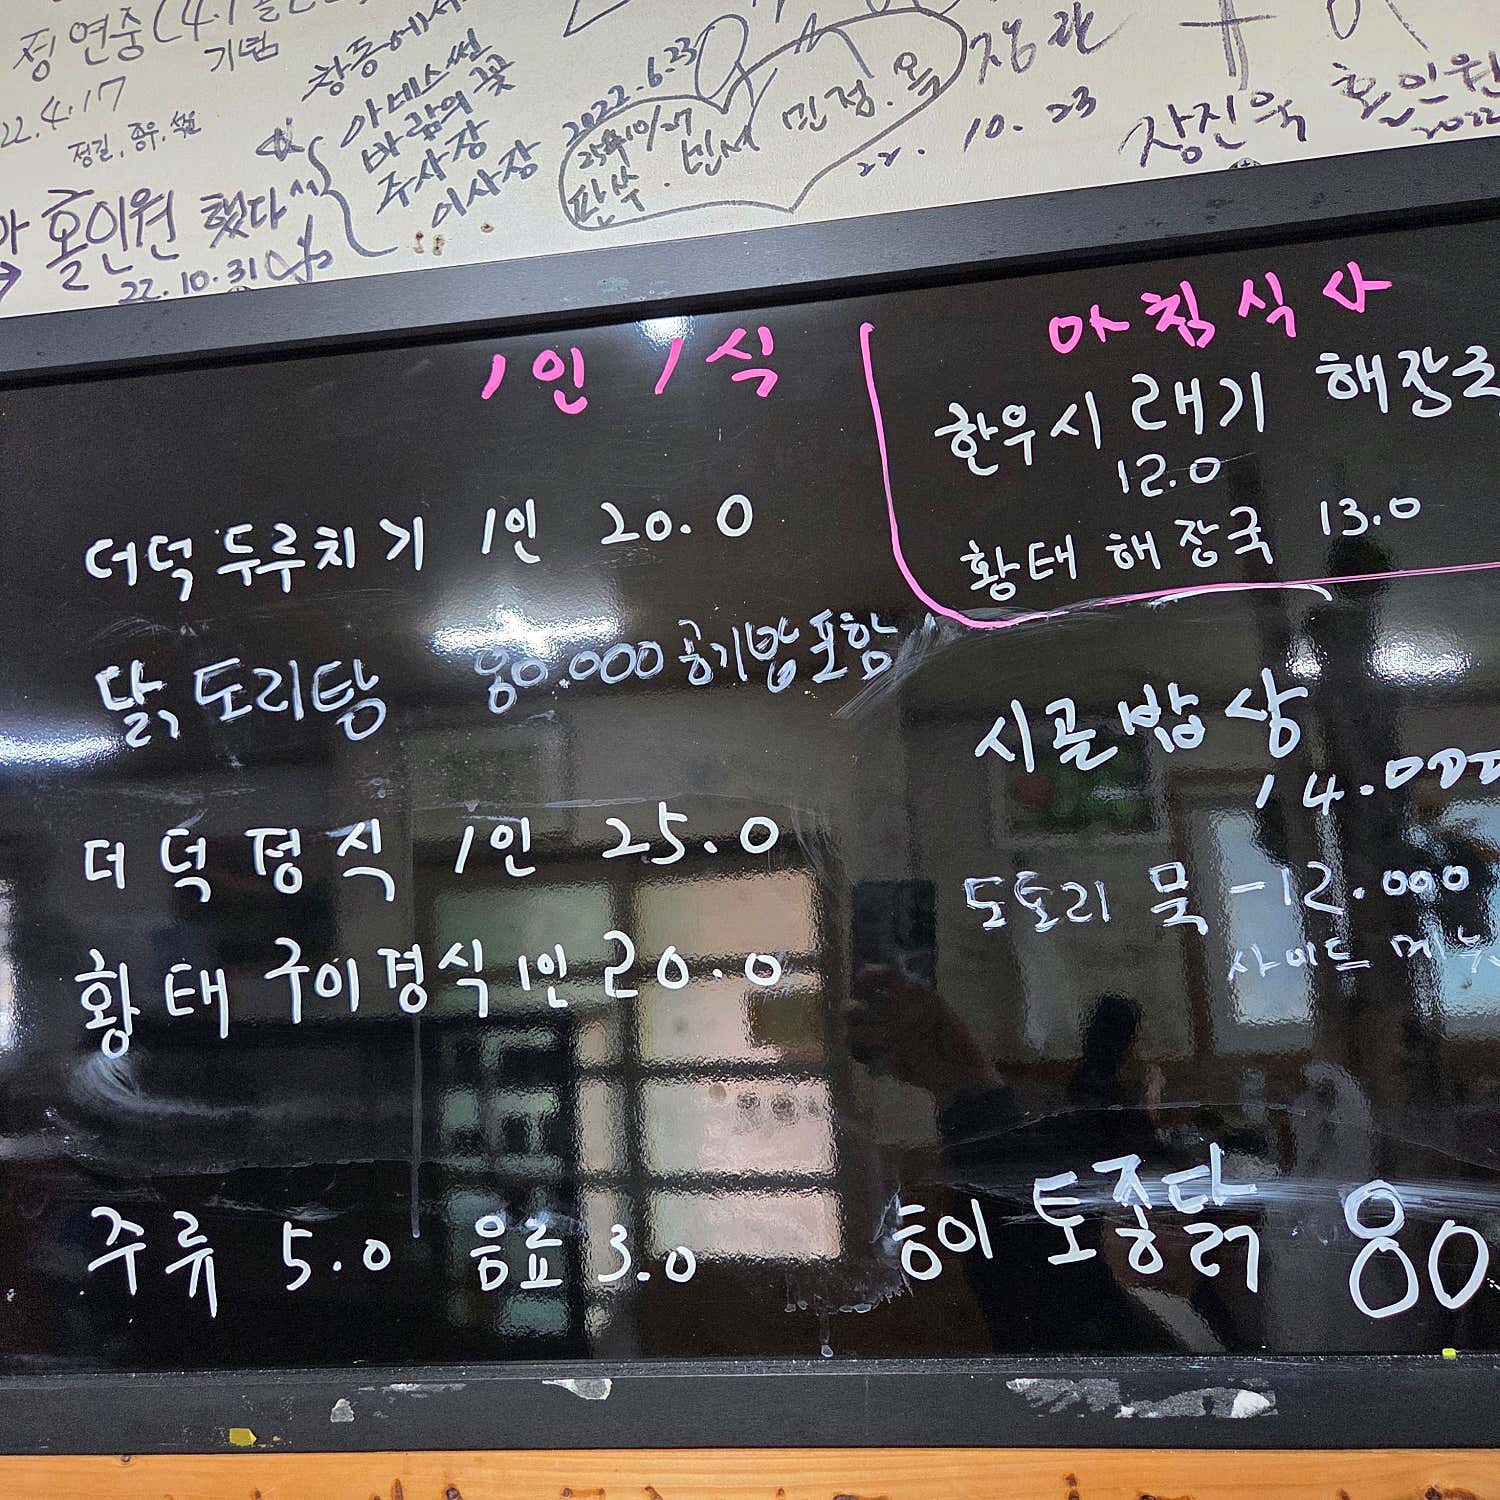 정연중
기념
창동에서
22.4.17
정길, 종우,
아네스쎈
바람의 꽃
주사장
이사장
홀인원 했다
22.10.31
2022.6.23
25年10/27
민정.옥
장관
22. 10. 23
장진욱 홀인원
1인 1식
더덕두루치기 1인 20.0
닭도리탕 80.000 공기밥포함
더덕정식 1인 25.0
황태구이정식 1인 20.0
주류 5.0 음료 3.0
아침식사
한우시래기 해장국
12.0
황태해장국 13.0
시골밥상
14.000
도토리묵 -12.000
사이드 메뉴
능이토종닭 80